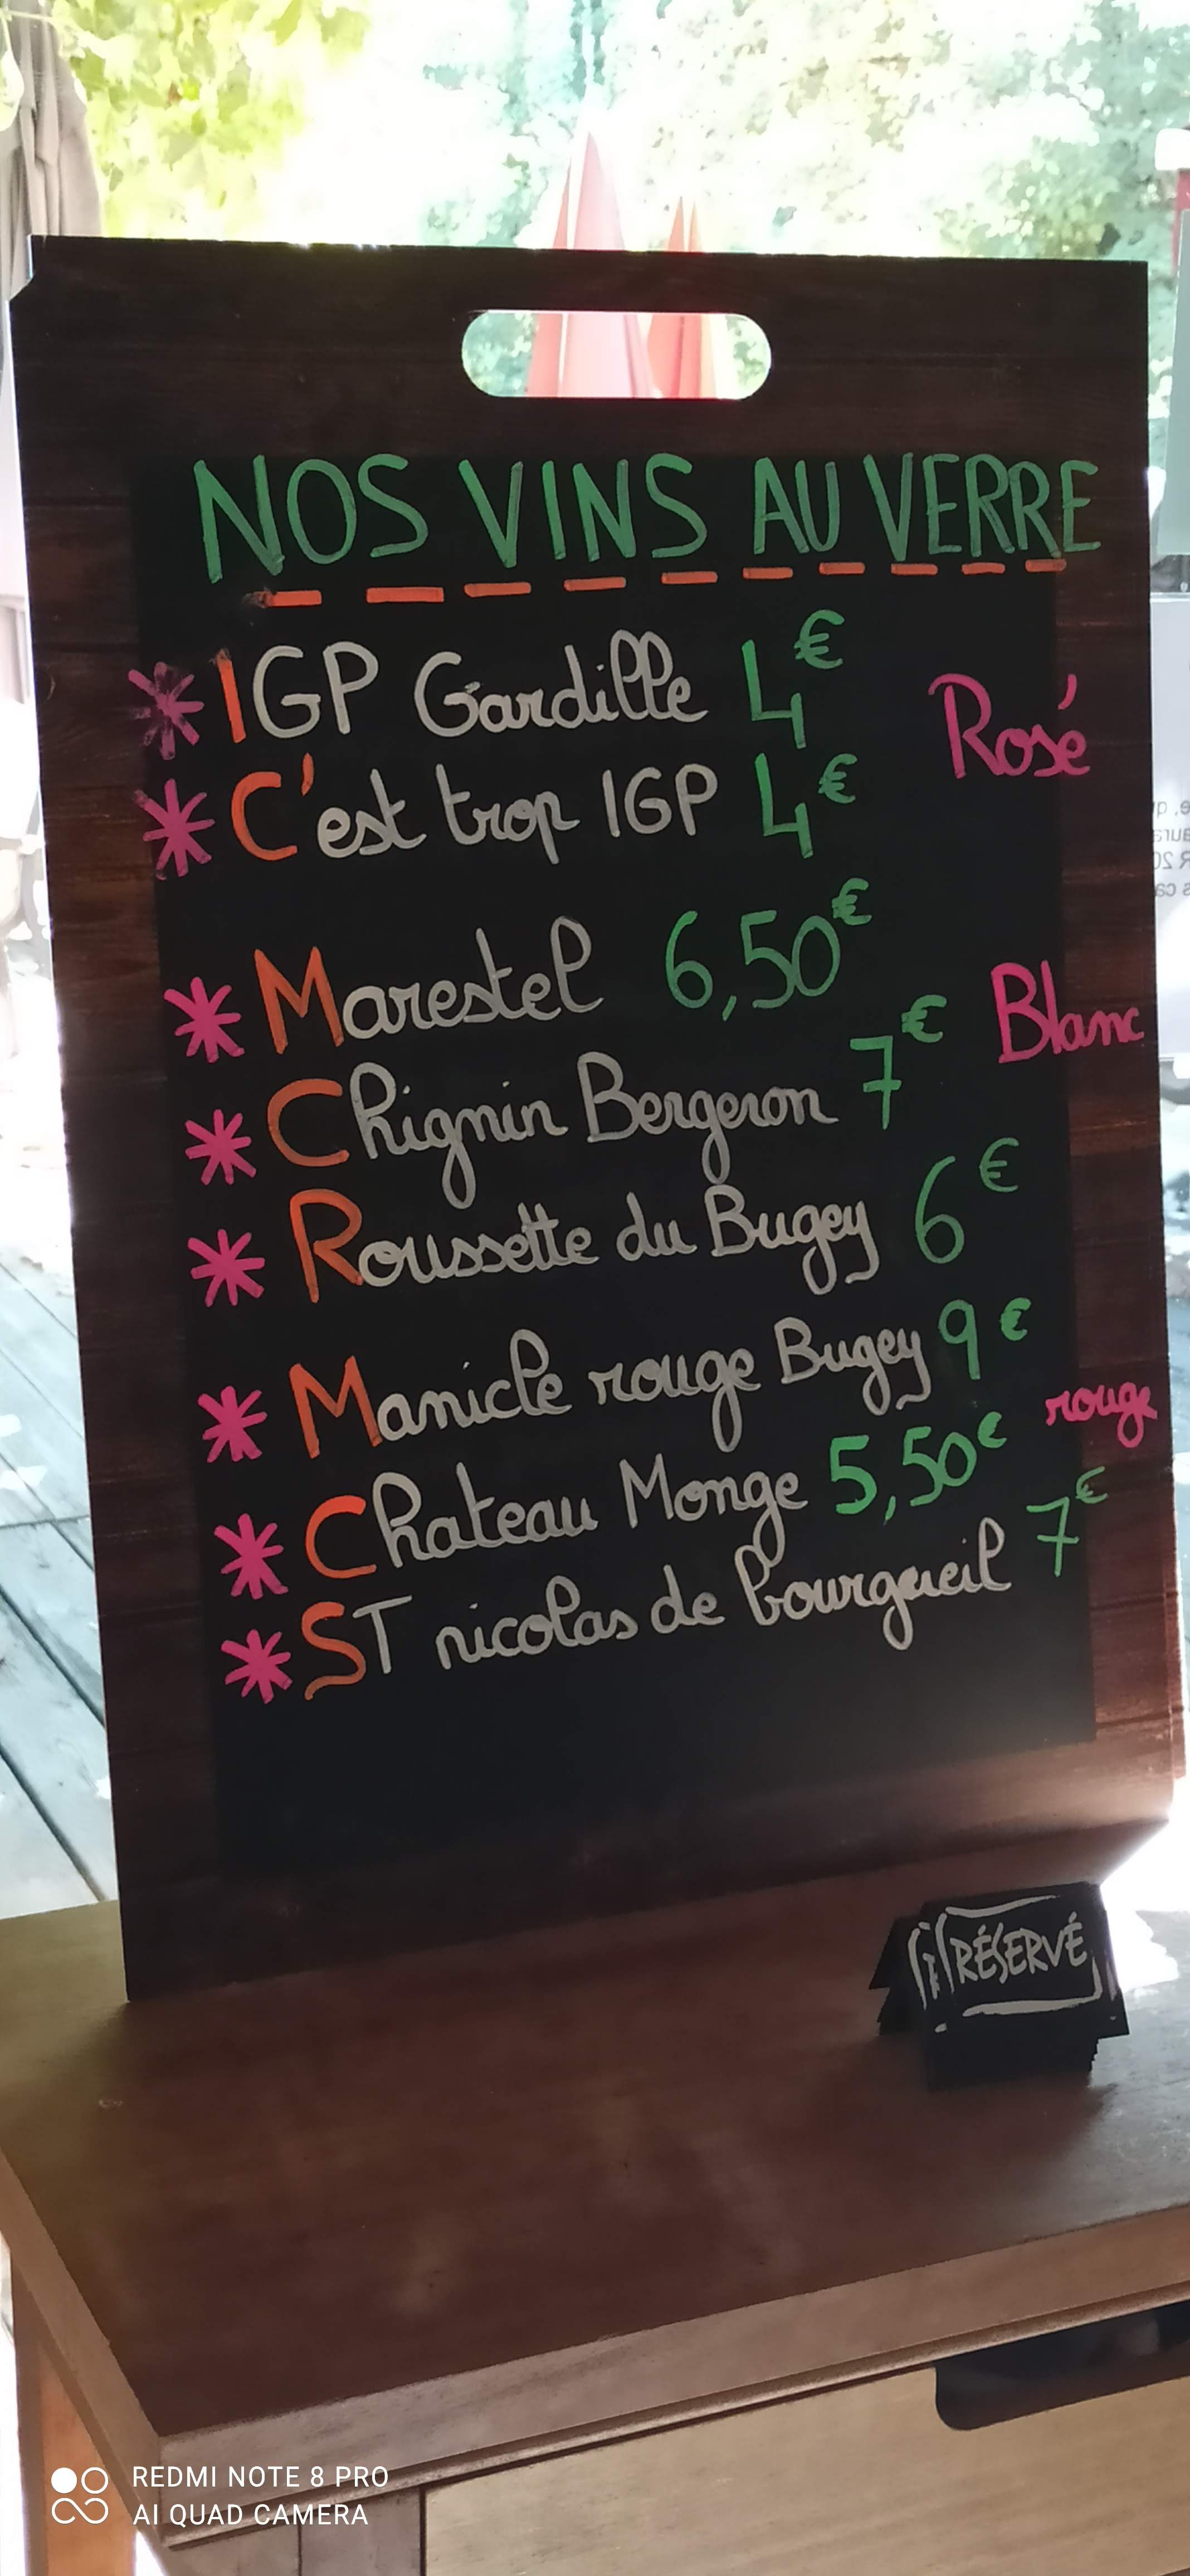 NOS VINS AU VERRE
* IGP Gardille 4€
Rosé
* C'est trop IGP 4€
* Marestel 6,50€
Blanc
* Chignin Bergeron 7€
* Roussette du Bugey 6€
* Manicle rouge Bugey 9€
rouge
* Chateau Monge 5,50€
* ST nicolas de bourgueil 7€
RÉSERVÉ
REDMI NOTE 8 PRO
AI QUAD CAMERA